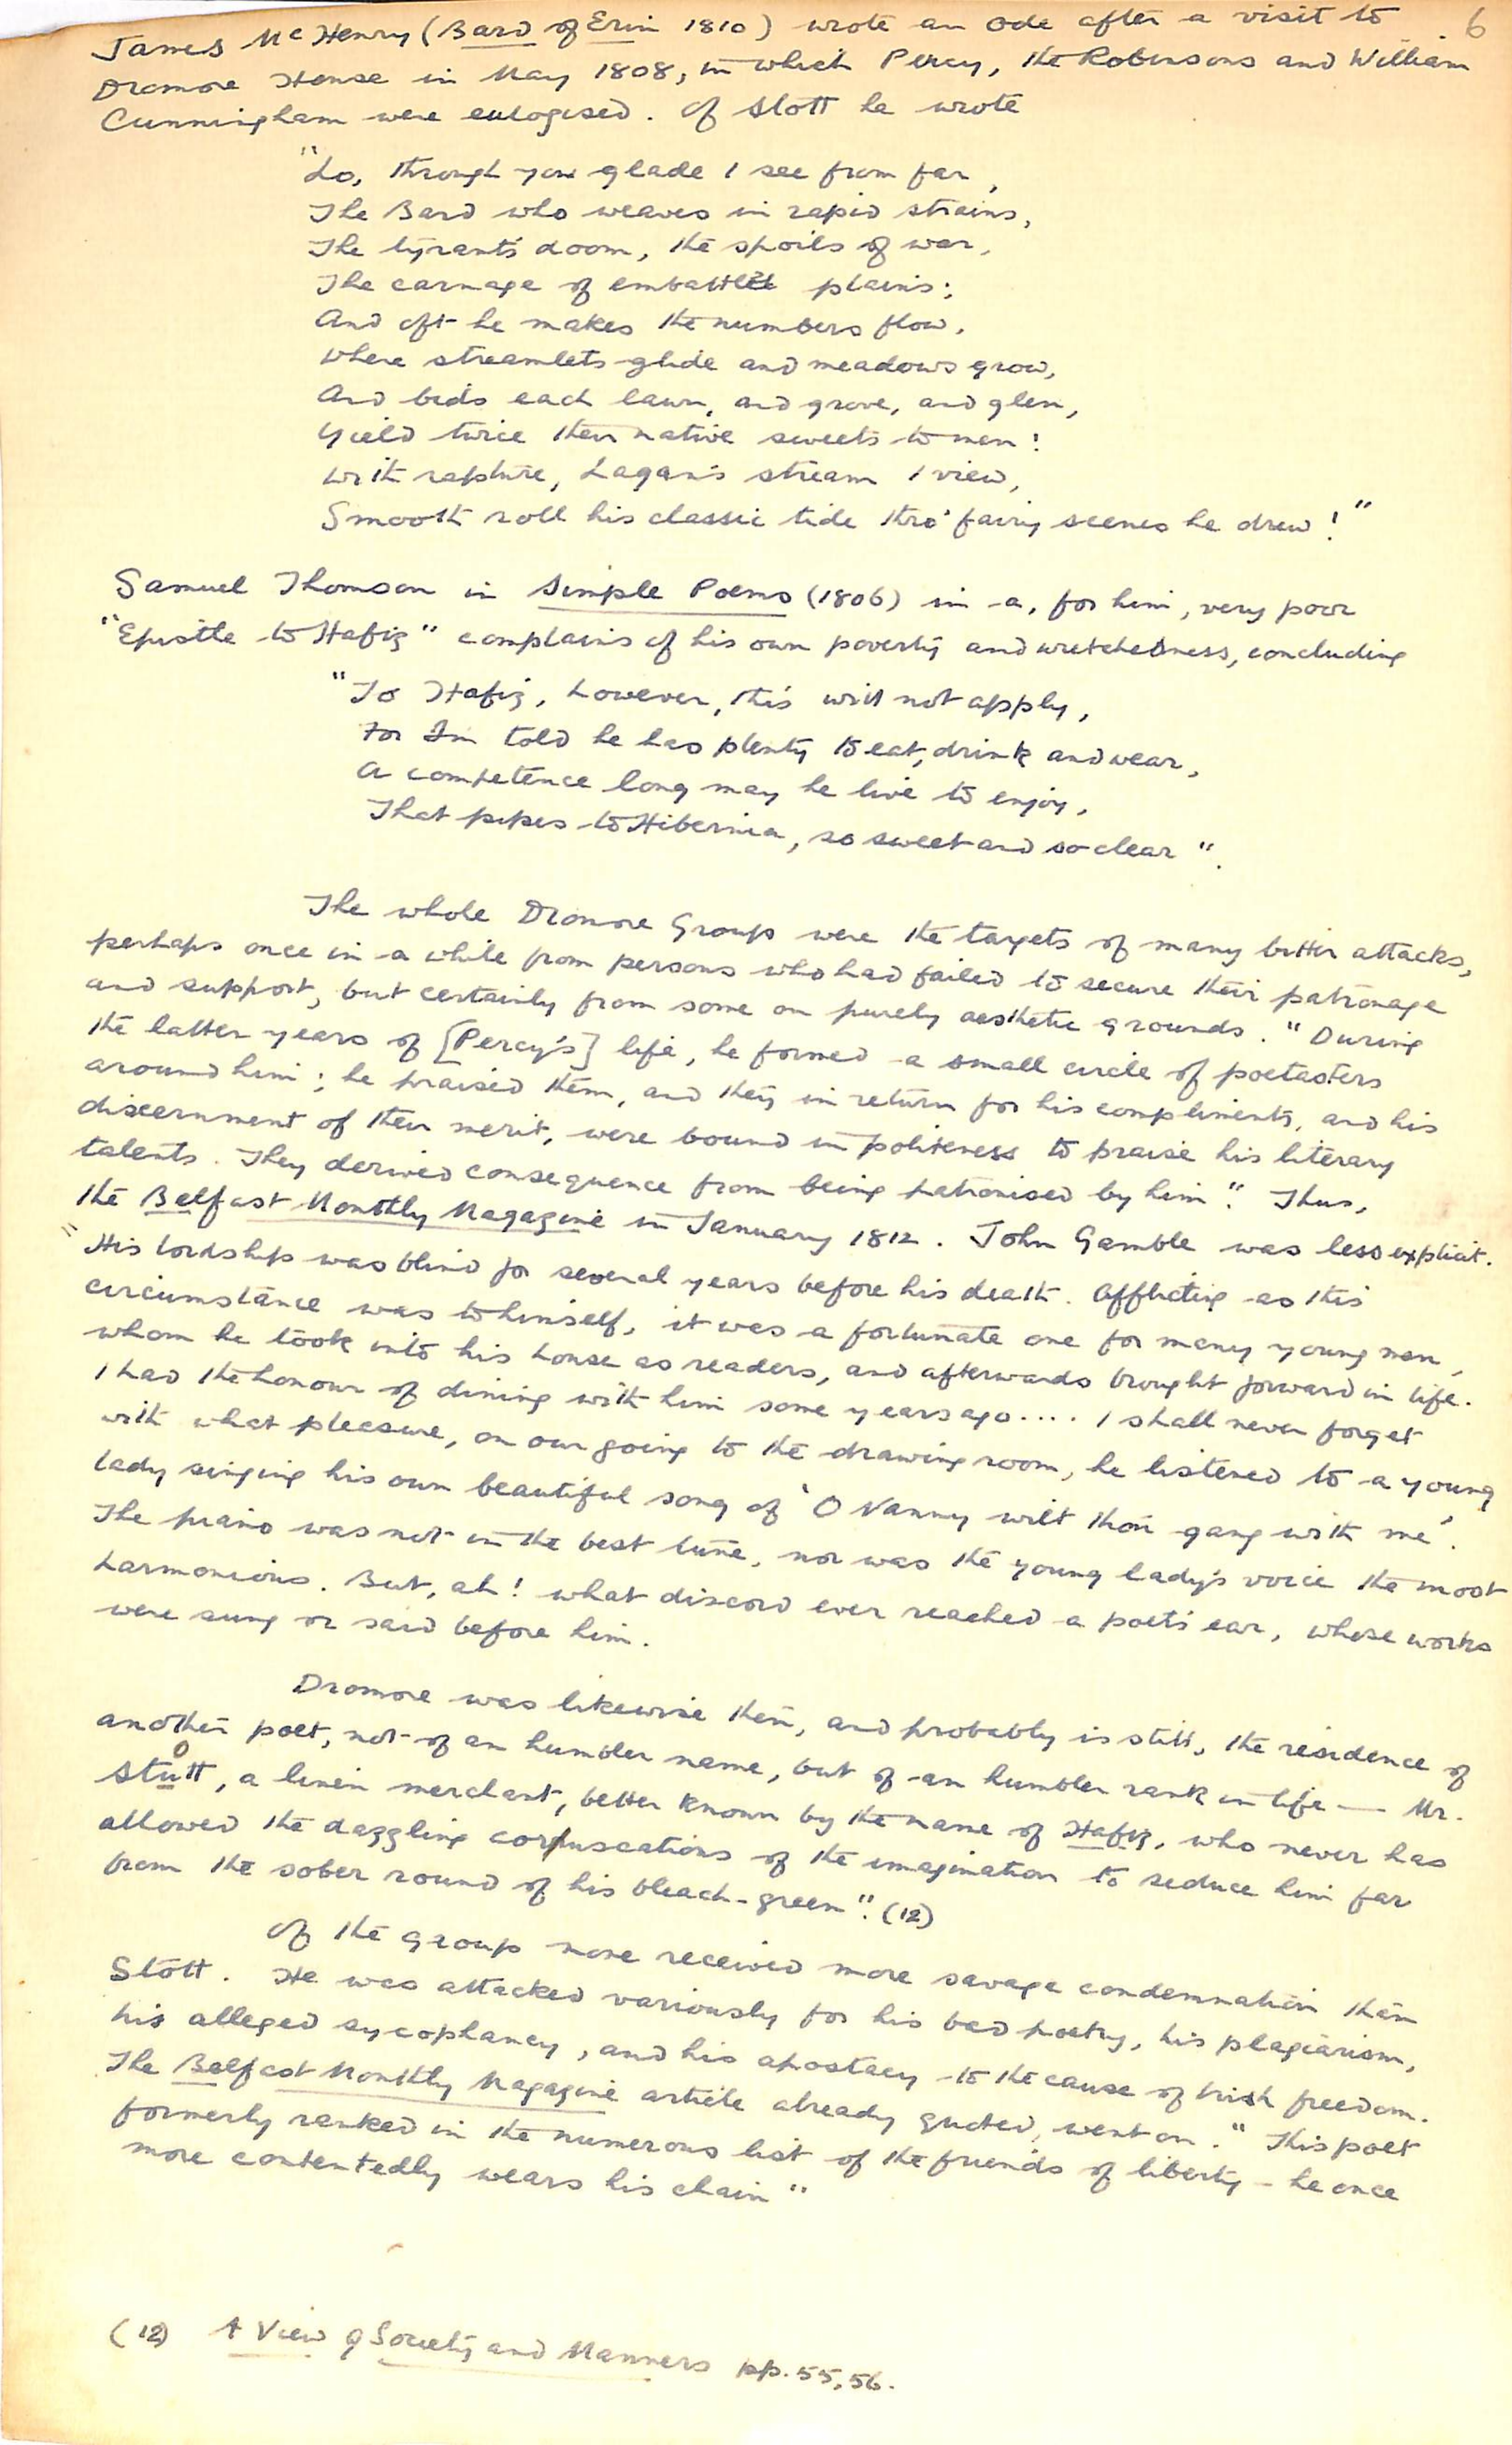 6
James McHenry (Bard of Erin 1810) wrote an ode after a visit to
Dromore House in May 1808, in which Percy, the Robinsons and William
Cunningham were eulogised. Of Stott he wrote
"Lo, through yon glade I see from far,
The Bard who weaves in rapid strains,
The tyrant's doom, the spoils of war,
The carnage of embattl'd plains;
And oft he makes the numbers flow,
Where streamlets glide and meadows grow,
And bids each lawn, and grove, and glen,
Yield twice their native sweets to men!
With rapture, Lagan's stream I view,
Smooth roll his classic tide thro' fairy scenes he drew!"
Samuel Thomson in Simple Poems (1806) in a, for him, very poor
"Epistle to Hafiz" complains of his own poverty and wretchedness, concluding
"To Hafiz, however, this will not apply,
For I'm told he has plenty to eat, drink and wear,
A competence long may he live to enjoy,
That pipes to Hibernia, so sweet and so clear".
The whole Dromore Group were the targets of many bitter attacks,
perhaps once in a while from persons who had failed to secure their patronage
and support, but certainly from some on purely aesthetic grounds. "During
the latter years of [Percy's] life, he formed a small circle of poetasters
around him; he praised them, and they in return for his compliments, and his
discernment of their merit, were bound in politeness to praise his literary
talents. They derived consequence from being patronised by him". Thus,
the Belfast Monthly Magazine in January 1812. John Gamble was less explicit.
"His lordship was blind for several years before his death. Afflicting as this
circumstance was to himself, it was a fortunate one for many young men,
whom he took into his house as readers, and afterwards brought forward in life.
I had the honour of dining with him some years ago.... I shall never forget
with what pleasure, on our going to the drawing room, he listened to a young
lady singing his own beautiful song of 'O Nanny wilt thou gang with me'.
The piano was not in the best tune, nor was the young lady's voice the most
harmonious. But, ah! what discord ever reached a poet's ear, whose works
were sung or said before him.
Dromore was likewise then, and probably is still, the residence of
another poet, not of an humbler name, but of an humbler rank in life — Mr.
Stott, a linen merchant, better known by the name of Hafiz, who never has
allowed the dazzling coruscations of the imagination to seduce him far
from the sober round of his bleach-green". (12)
Of the group none received more savage condemnation than
Stott. He was attacked variously for his bad poetry, his plagiarism,
his alleged sycophancy, and his apostacy to the cause of Irish freedom.
The Belfast Monthly Magazine article already quoted, went on. "This poet
formerly ranked in the numerous list of the friends of liberty – he once
more contentedly wears his chain"
(12) A View of Society and Manners pp. 55, 56.